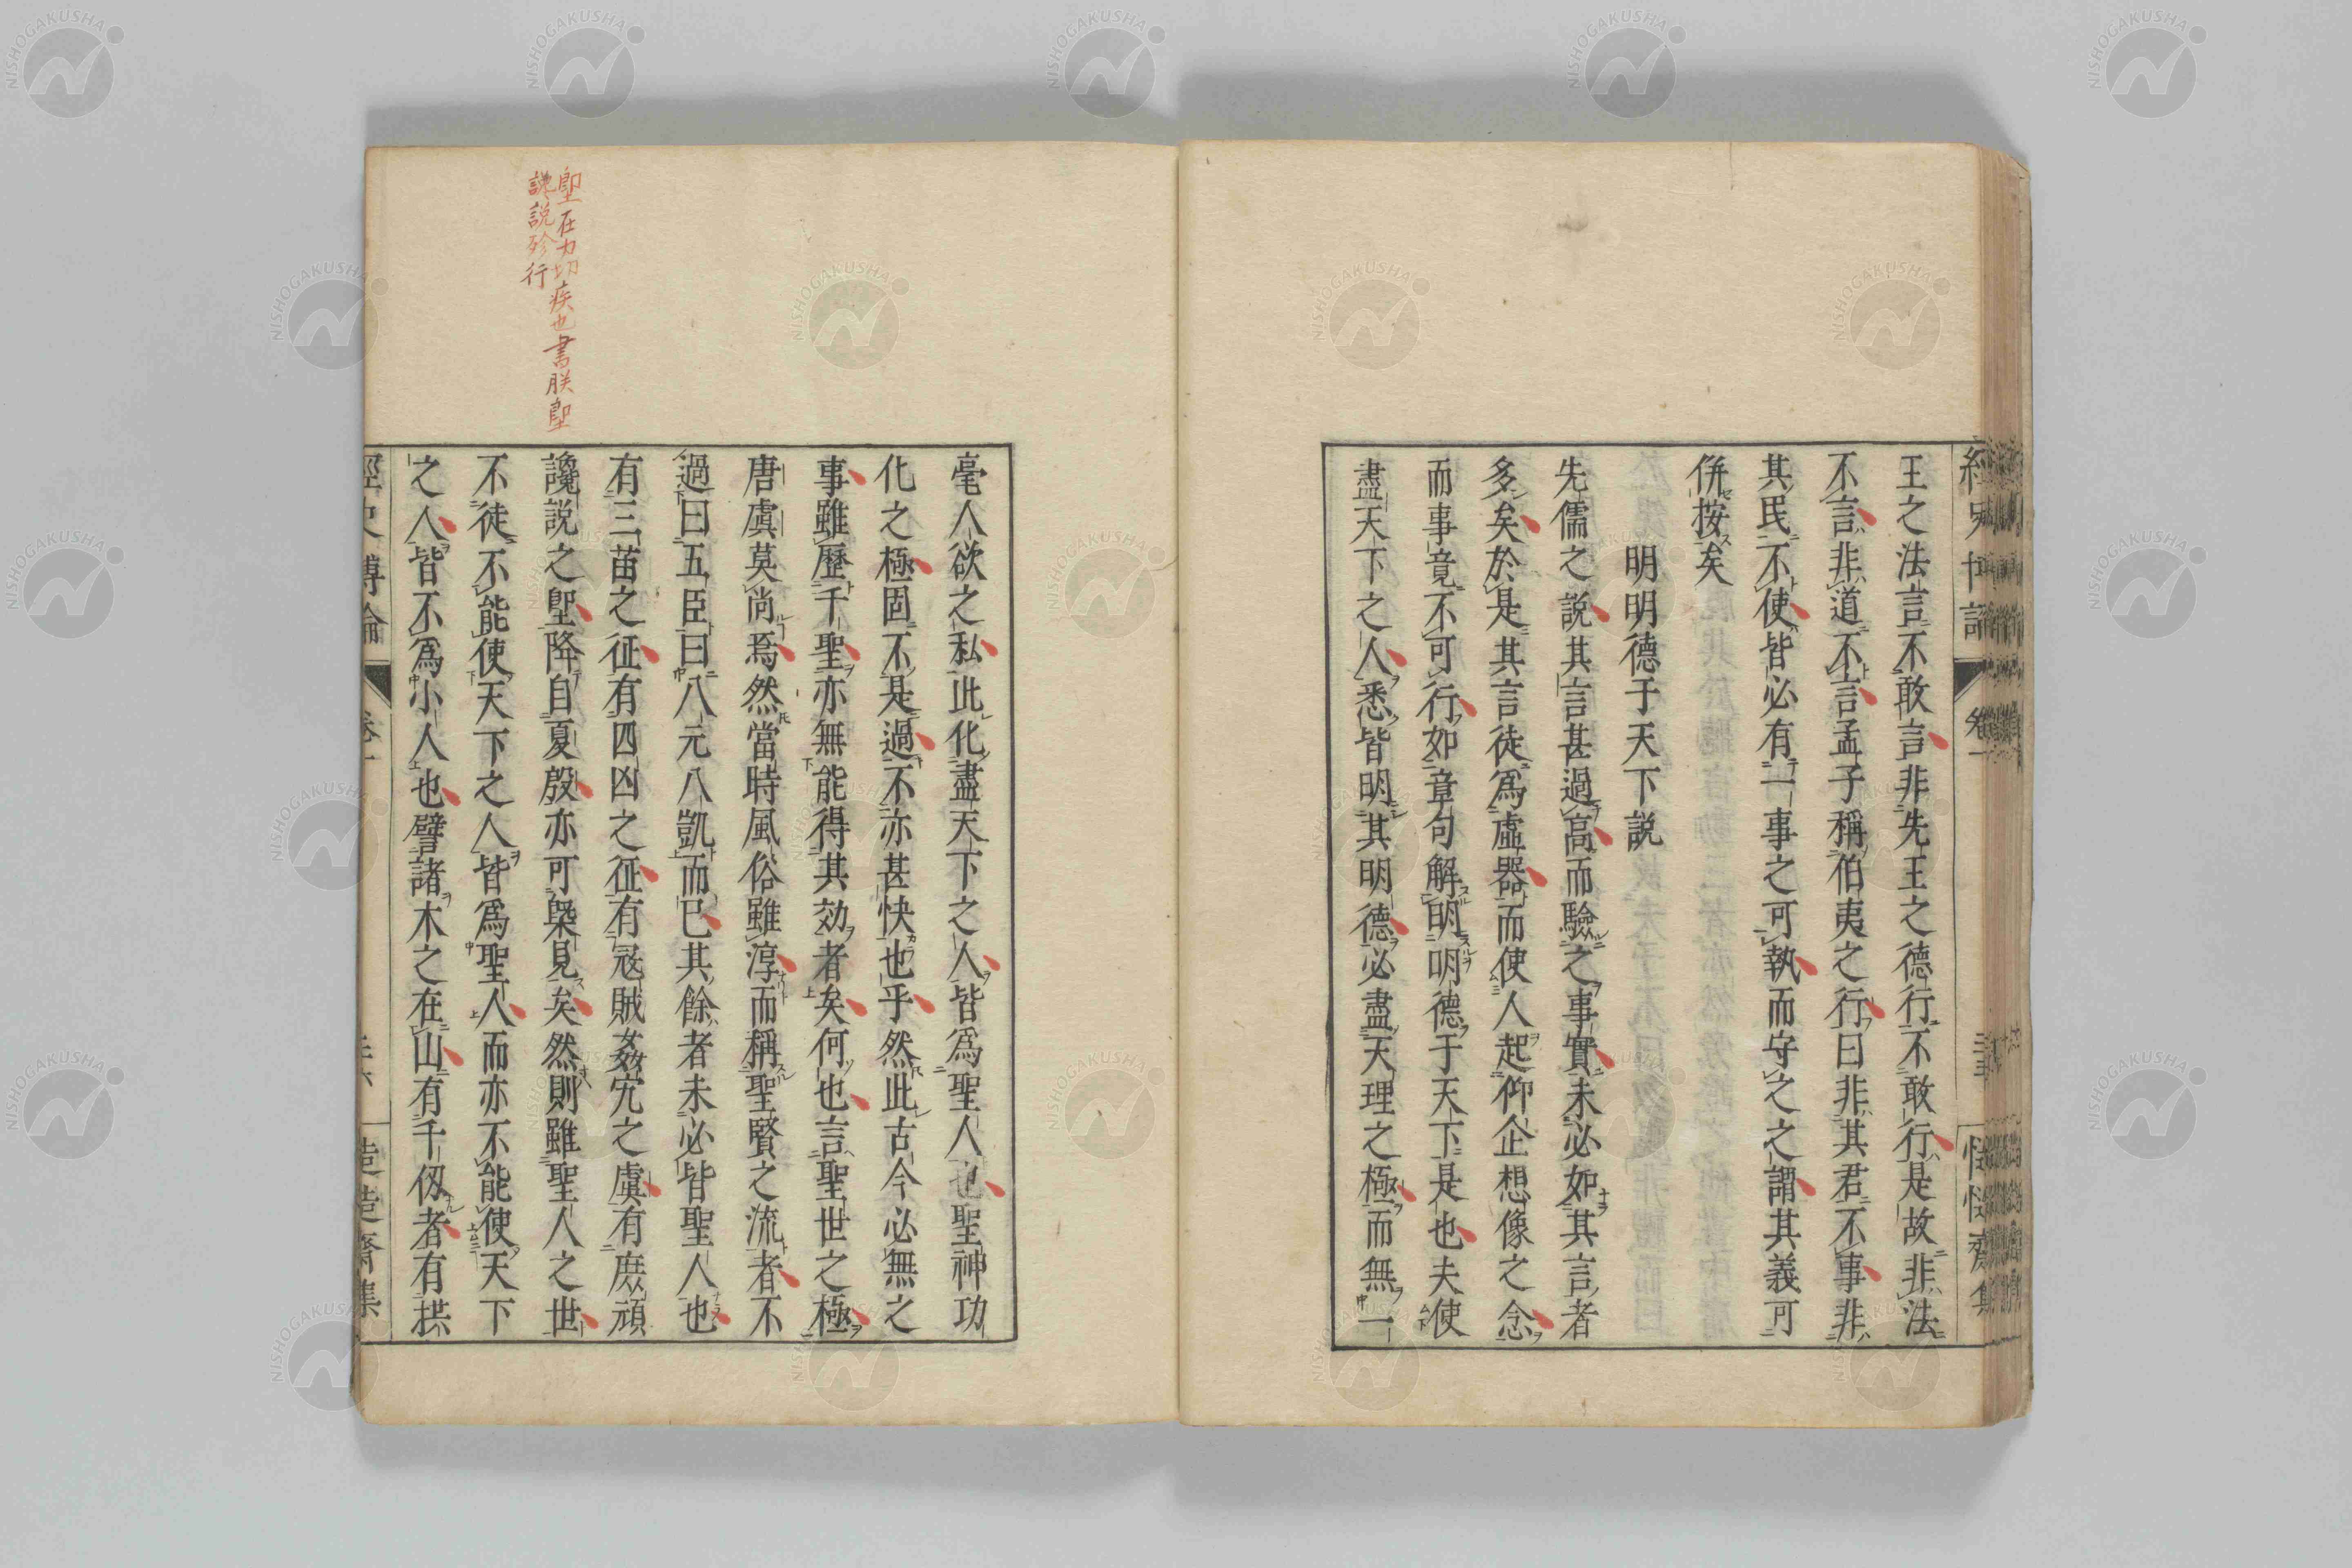 王之法言不敢言非先王之德行不敢行是故非法
不言非道不言孟子稱伯夷之行曰非其君不事非
其民不使皆必有一事之可執而守之之謂其義可
併按矣
明明德于天下説
先儒之説其言甚過高而驗之事實未必如其言者
多矣於是其言徒爲虚器而使人起仰企想像之念
而事竟不可行如章句解明明德于天下是也夫使
盡天下之人悉皆明其明德必盡天理之極而無一
毫人欲之私此化盡天下之人皆爲聖人也聖神功
化之極固不是過不亦甚快也乎然此古今必無之
事雖歷千聖亦無能得其効者矣何也言聖世之極
唐虞莫尚焉然當時風俗雖淳而稱聖賢之流者不
過曰五臣曰八元八凱而已其餘者未必皆聖人也
有三苗之征有四凶之征有冦賊姦宄之虞有庶頑
讒説之堲降自夏殷亦可槩見矣然則雖聖人之世
不徒不能使天下之人皆爲聖人而亦不能使天下
之人皆不爲小人也譬諸木之在山有千仭者有拱
堲在力切疾也書朕堲
讒説殄行
NISHOGAKUSHA